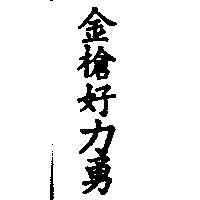 金槍好力勇